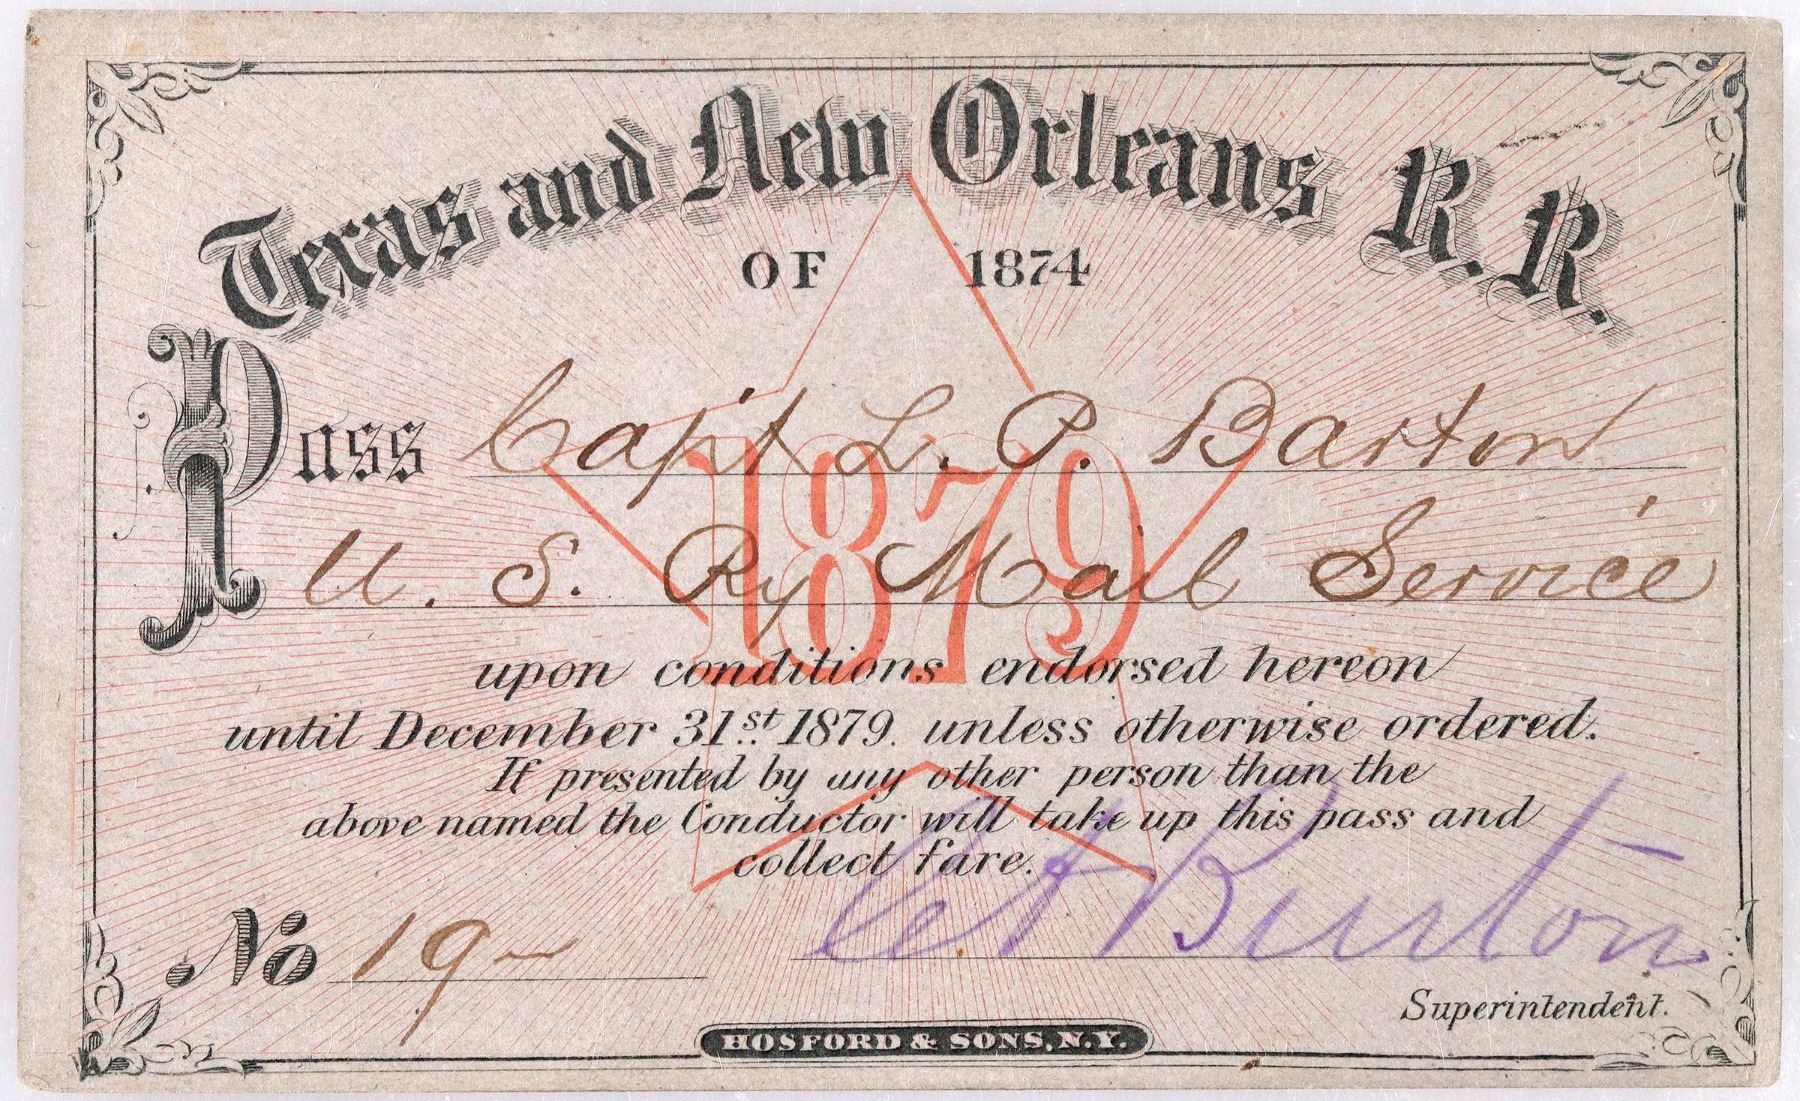 Texas and New Orleans R.R.
OF 1874
1879
Pass Cap't L. P. Barton
U. S. Ry Mail Service
upon conditions endorsed hereon
until December 31st 1879. unless otherwise ordered.
If presented by any other person than the
above named the Conductor will take up this pass and
collect fare.
No 19
Burton
Superintendent.
HOSFORD & SONS, N.Y.